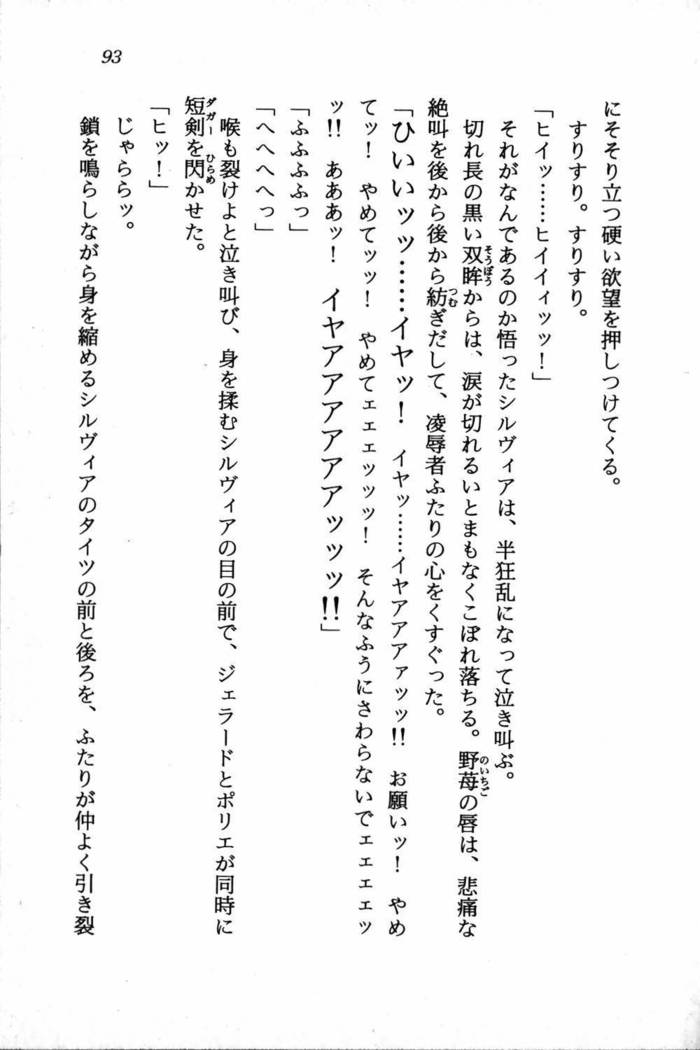 93
にそそり立つ硬い欲望を押しつけてくる。
すりすり。すりすり。
「ヒイッ……ヒイイィッッ！」
それがなんであるのか悟ったシルヴィアは、半狂乱になって泣き叫ぶ。
切れ長の黒い双眸そうぼうからは、涙が切れるいとまもなくこぼれ落ちる。野苺のいちごの唇は、悲痛な
絶叫を後から後から紡つむぎだして、凌辱者ふたりの心をくすぐった。
「ひいいッッ……イヤッ！　イヤッ……イヤアアァッッ!!　お願いッ！　やめ
てッ！　やめてッッ！　やめてェェェッッッ！　そんなふうにさわらないでェェェェッ
ッ!!　あああッ！　イヤアアアアアアッッッ!!」
「ふふふふっ」
「へへへへっ」
喉も裂けよと泣き叫び、身を揉むシルヴィアの目の前で、ジェラードとポリエが同時に
短剣ダガーを閃ひらめかせた。
「ヒッ！」
じゃららッ。
鎖を鳴らしながら身を縮めるシルヴィアのタイツの前と後ろを、ふたりが仲よく引き裂